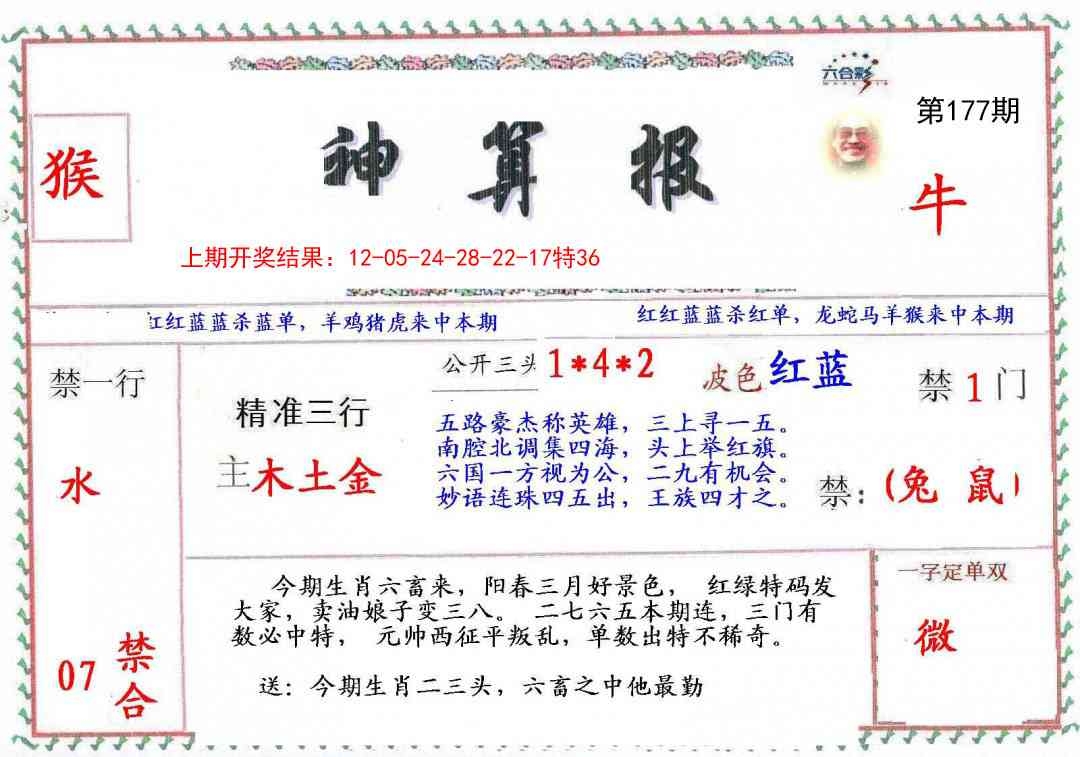 六合彩
第177期
猴
神算报
牛
上期开奖结果：12-05-24-28-22-17特36
红红蓝蓝杀蓝单，羊鸡猪虎来中本期
红红蓝蓝杀红单，龙蛇马羊猴来中本期
禁一行
水
07
禁合
精准三行
主木土金
公开三头 1*4*2
波色 红蓝
五路豪杰称英雄，三上寻一五。
南腔北调集四海，头上举红旗。
六国一方视为公，二九有机会。
妙语连珠四五出，王族四才之。
禁 1 门
禁：(兔 鼠)
今期生肖六畜来，阳春三月好景色， 红绿特码发
大家，卖油娘子变三八。 二七六五本期连，三门有
数必中特， 元帅西征平叛乱，单数出特不稀奇。
送：今期生肖二三头，六畜之中他最勤
一字定单双
微